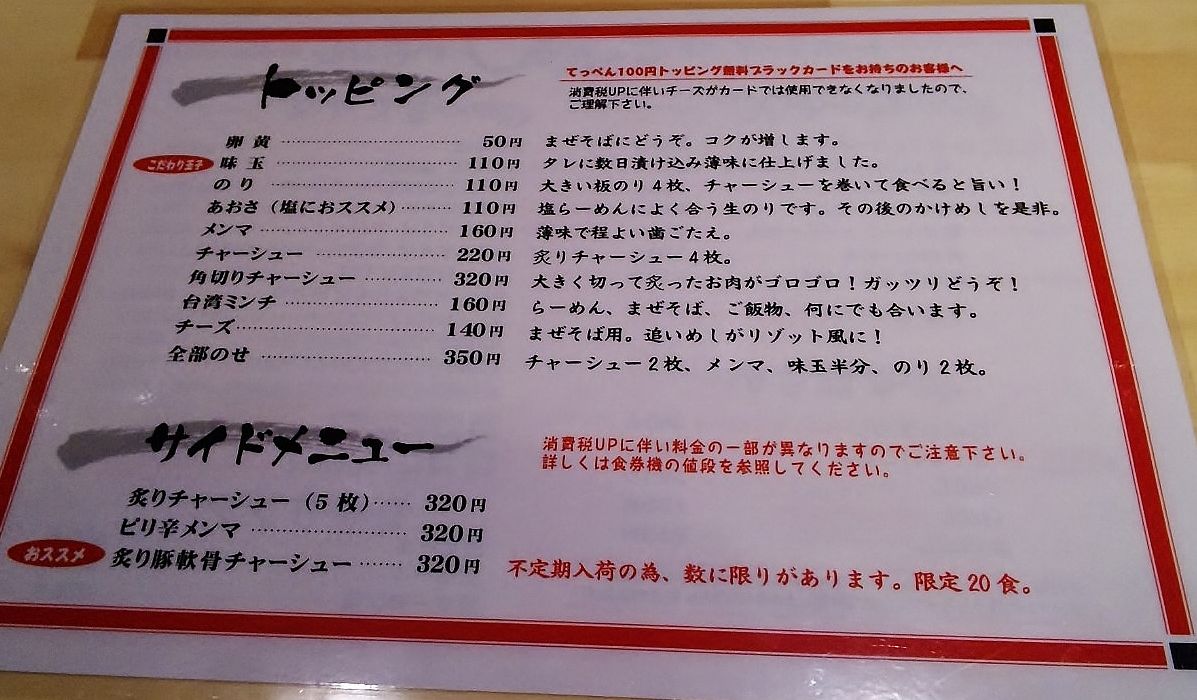 トッピング
てっぺん100円トッピング無料ブラックカードをお持ちのお客様へ
消費税UPに伴いチーズがカードでは使用できなくなりましたので、
ご理解下さい。
卵黄 50円 まぜそばにどうぞ。コクが増します。
こだわり玉子 味玉 110円 タレに数日漬け込み薄味に仕上げました。
のり 110円 大きい板のり4枚、チャーシューを巻いて食べると旨い！
あおさ（塩におススメ） 110円 塩らーめんによく合う生のりです。その後のかけめしを是非。
メンマ 160円 薄味で程よい歯ごたえ。
チャーシュー 220円 炙りチャーシュー4枚。
角切りチャーシュー 320円 大きく切って炙ったお肉がゴロゴロ！ガッツリどうぞ！
台湾ミンチ 160円 らーめん、まぜそば、ご飯物、何にでも合います。
チーズ 140円 まぜそば用。追いめしがリゾット風に！
全部のせ 350円 チャーシュー2枚、メンマ、味玉半分、のり2枚。
サイドメニュー
消費税UPに伴い料金の一部が異なりますのでご注意下さい。
詳しくは食券機の値段を参照してください。
炙りチャーシュー（5枚） 320円
ピリ辛メンマ 320円
おススメ 炙り豚軟骨チャーシュー 320円 不定期入荷の為、数に限りがあります。限定20食。